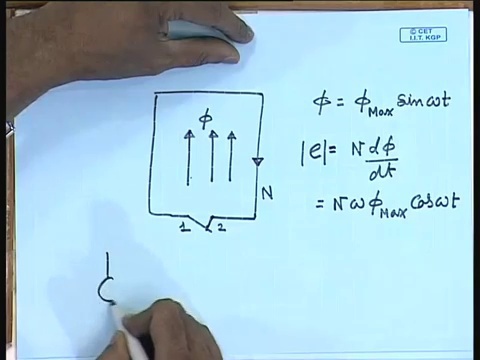 © CET
I.I.T. KGP
ϕ
ϕ = ϕ_Max sin ωt
|e| = N dϕ/dt
N
= N ω ϕ_Max cos ωt
1 2